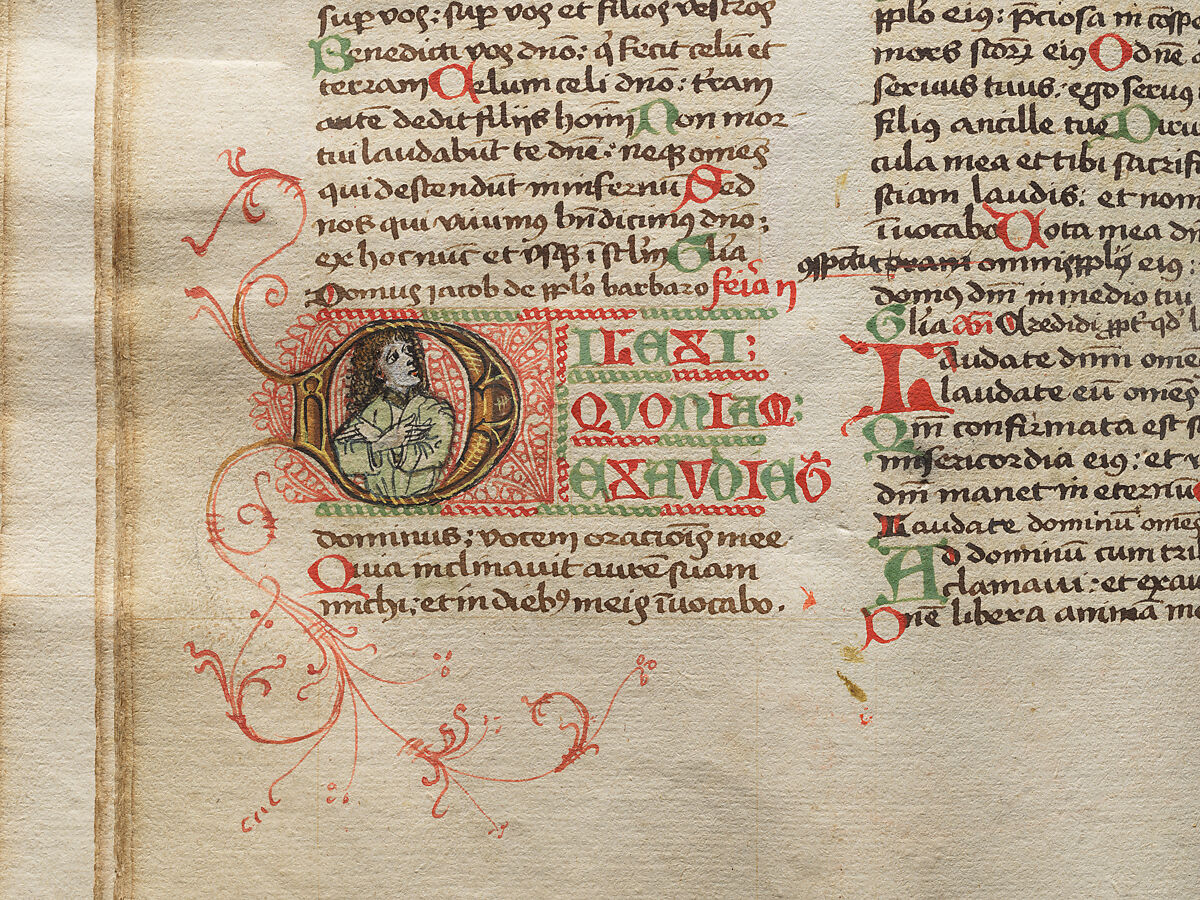 sup vos: sup vos et filios vestros
Benedicti vos dno: q̇ fecit celū et
terram Celum celi dno: t̃ram
autē dedit filiis homī Non mor-
tui laudabūt te dnē: neq̃ omēs
qui descendūt in infernū Sed
nos qui vivimus bn̄dicimus dno:
ex hoc nūc et usq̃ ī sclm̃ Glia
Domus iacob de pplo barbaro feria ij
DILEXI:
QVONIAM:
EXAVDIET
dominus: vocem oracīōis mee
Quia inclinavit aurē suam
michi: et in dieb9 meis īvocabo.
pplo eius: p̄ciosa in cōspe
mors scōrꝝ eius O dnē
servus tuus: ego servus
filius ancille tue Diru
cula mea et tibi sacrifi
stiam laudis: et nom
īvocabo Vota mea dn
omnis ppli eius:
domus dnī in medio tui
Glia añ Credidi ppt̃ qd̓ l
Laudate dnm̄ omē
laudate eū omēs
Qm̄ confirmata est s
misericordia eius: et v
dnī manet in eternū
Laudate dominū omēs
Ad dominū cum tri
clamavi: et exau
Dnē libera animā me